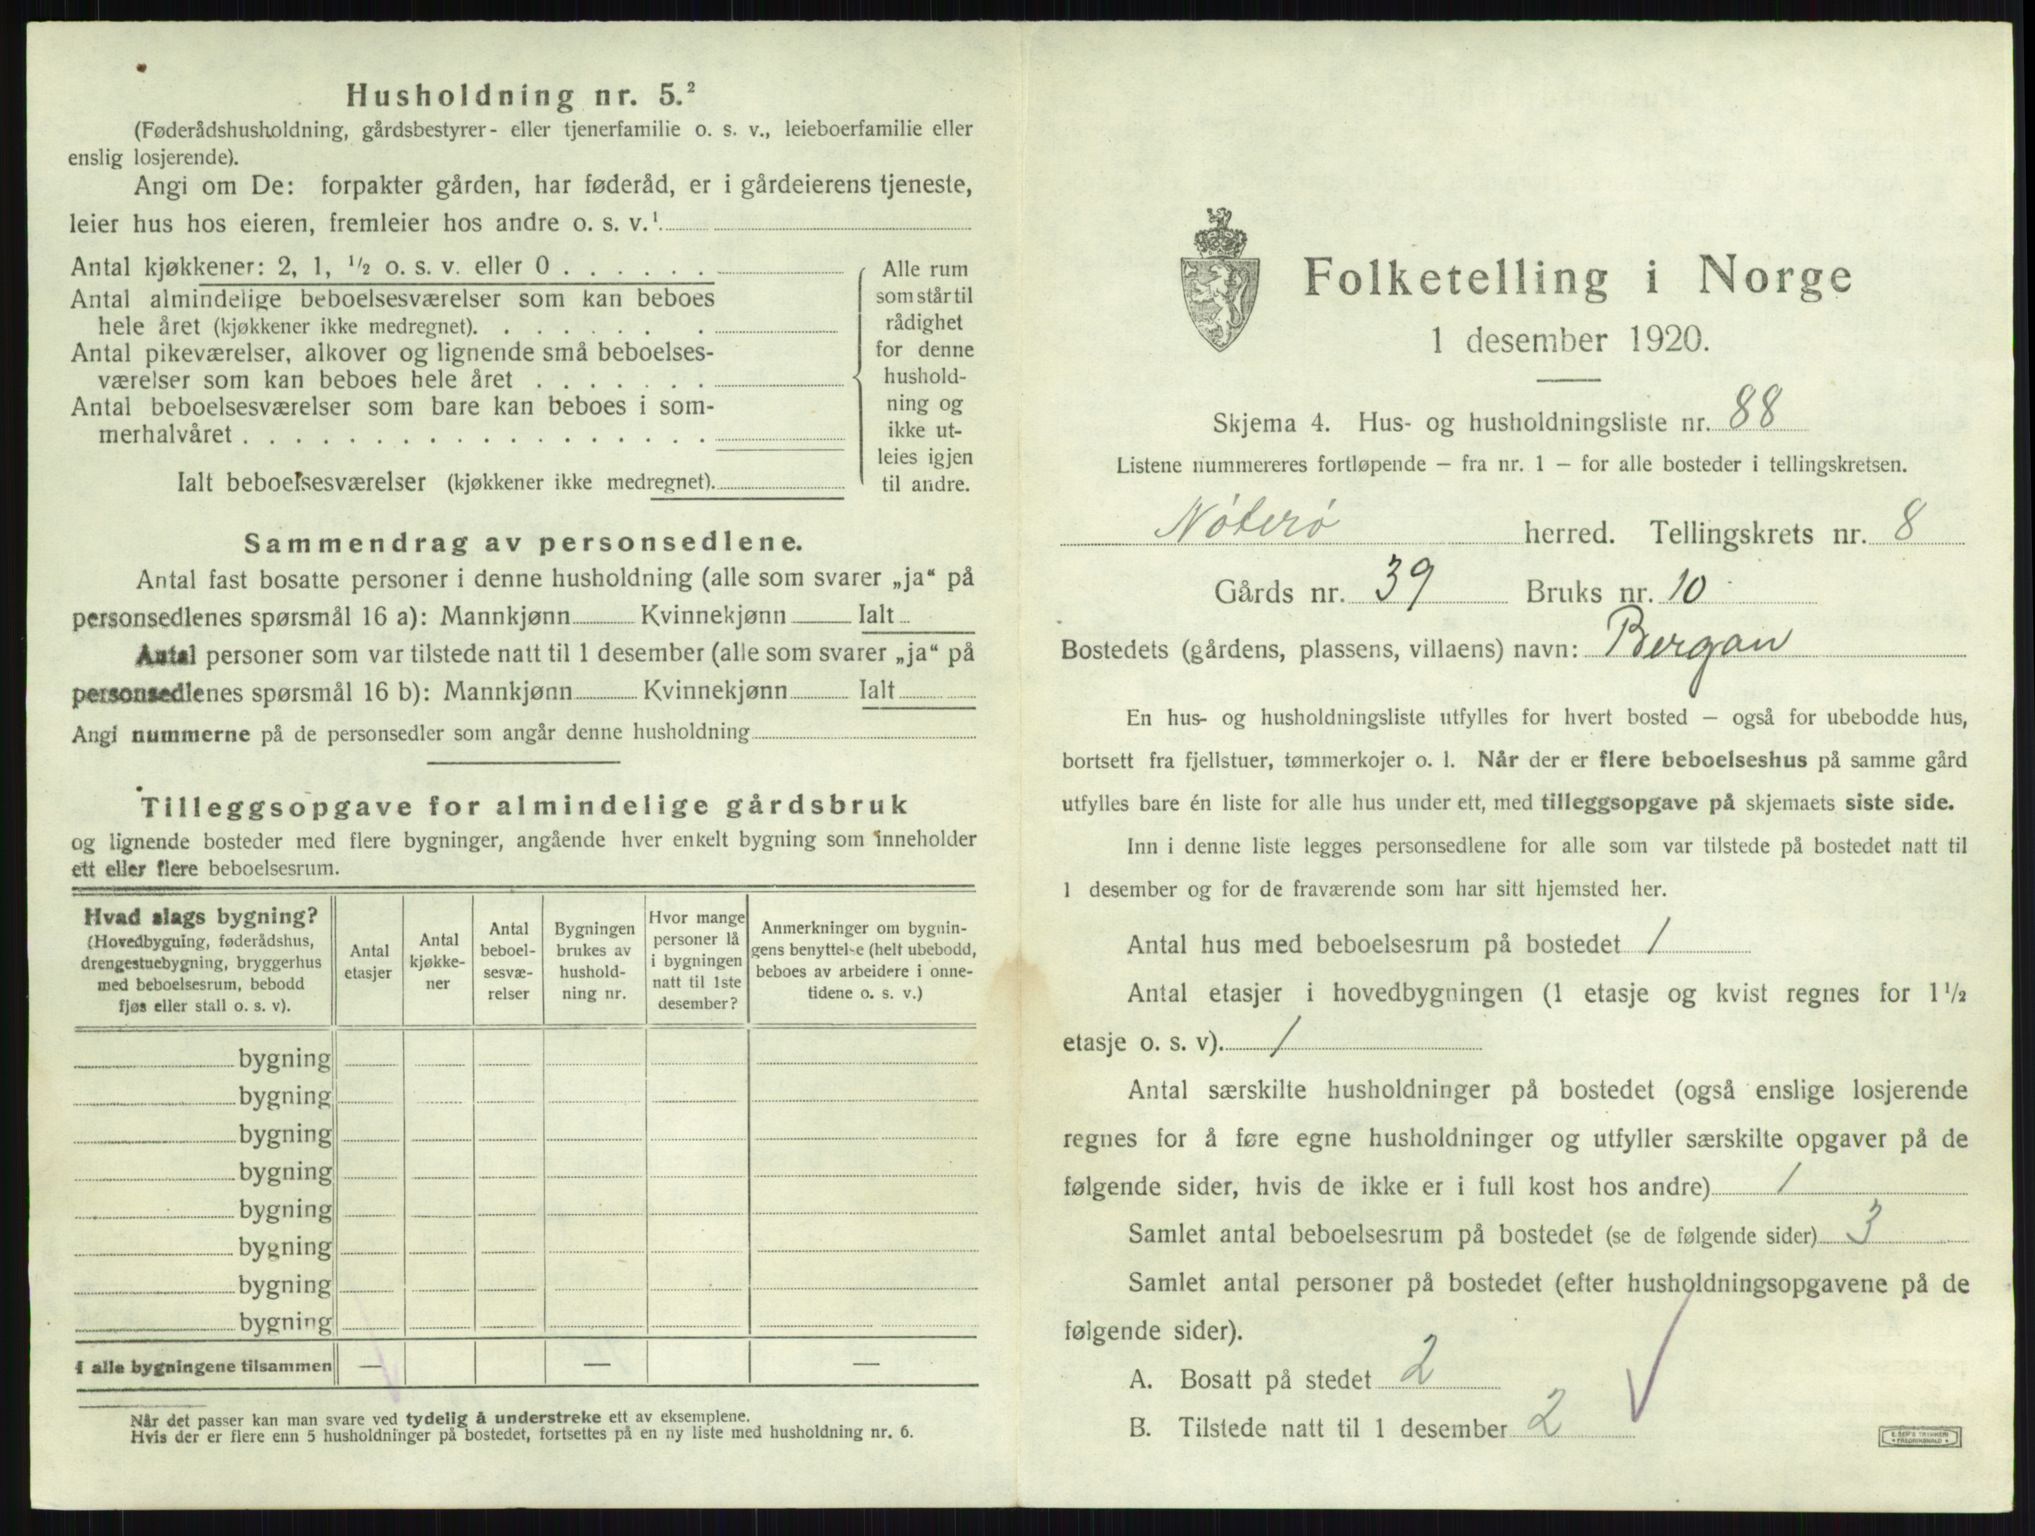 Husholdning nr. 5.²
(Føderådshusholdning, gårdsbestyrer- eller tjenerfamilie o. s. v., leieboerfamilie eller
enslig losjerende).
Angi om De: forpakter gården, har føderåd, er i gårdeierens tjeneste,
leier hus hos eieren, fremleier hos andre o. s. v.¹
Antal kjøkkener: 2, 1, ½ o. s. v. eller 0 . . . . . .
Antal almindelige beboelsesværelser som kan beboes
hele året (kjøkkener ikke medregnet). . . . . . . . .
Antal pikeværelser, alkover og lignende små beboelses-
værelser som kan beboes hele året . . . . . . .
Antal beboelsesværelser som bare kan beboes i som-
merhalvåret . . . . . . . . . . . . . . . . . .
Ialt beboelsesværelser (kjøkkener ikke medregnet).
Alle rum
som står til
rådighet
for denne
hushold-
ning og
ikke ut-
leies igjen
til andre.
Sammendrag av personsedlene.
Antal fast bosatte personer i denne husholdning (alle som svarer „ja“ på
personsedlenes spørsmål 16 a): Mannkjønn Kvinnekjønn Ialt
Antal personer som var tilstede natt til 1 desember (alle som svarer „ja“ på
personsedlenes spørsmål 16 b): Mannkjønn Kvinnekjønn Ialt
Angi nummerne på de personsedler som angår denne husholdning
Tilleggsopgave for almindelige gårdsbruk
og lignende bosteder med flere bygninger, angående hver enkelt bygning som inneholder
ett eller flere beboelsesrum.
Hvad slags bygning?
(Hovedbygning, føderådshus,
drengestuebygning, bryggerhus
med beboelsesrum, bebodd
fjøs eller stall o. s. v).
Antal
etasjer
Antal
kjøkke-
ner
Antal
beboel-
sesvæ-
relser
Bygningen
brukes av
hushold-
ning nr.
Hvor mange
personer lå
i bygningen
natt til 1ste
desember?
Anmerkninger om bygnin-
gens benyttelse (helt ubebodd,
beboes av arbeidere i onne-
tidene o. s. v.)
bygning
bygning
bygning
bygning
bygning
bygning
bygning
bygning
I alle bygningene tilsammen — — —
Når det passer kan man svare ved tydelig å understreke ett av eksemplene.
Hvis der er flere enn 5 husholdninger på bostedet, fortsettes på en ny liste med husholdning nr. 6.
Folketelling i Norge
1 desember 1920.
Skjema 4. Hus- og husholdningsliste nr. 88
Listene nummereres fortløpende – fra nr. 1 – for alle bosteder i tellingskretsen.
Nøterø herred. Tellingskrets nr. 8
Gårds nr. 39 Bruks nr. 10
Bostedets (gårdens, plassens, villaens) navn: Bergan
En hus- og husholdningsliste utfylles for hvert bosted – også for ubebodde hus,
bortsett fra fjellstuer, tømmerkojer o. l. Når der er flere beboelseshus på samme gård
utfylles bare én liste for alle hus under ett, med tilleggsopgave på skjemaets siste side.
Inn i denne liste legges personsedlene for alle som var tilstede på bostedet natt til
1 desember og for de fraværende som har sitt hjemsted her.
Antal hus med beboelsesrum på bostedet 1
Antal etasjer i hovedbygningen (1 etasje og kvist regnes for 1½
etasje o. s. v). 1
Antal særskilte husholdninger på bostedet (også enslige losjerende
regnes for å føre egne husholdninger og utfyller særskilte opgaver på de
følgende sider, hvis de ikke er i full kost hos andre) 1
Samlet antal beboelsesrum på bostedet (se de følgende sider) 3
Samlet antal personer på bostedet (efter husholdningsopgavene på de
følgende sider).
A. Bosatt på stedet 2
B. Tilstede natt til 1 desember 2